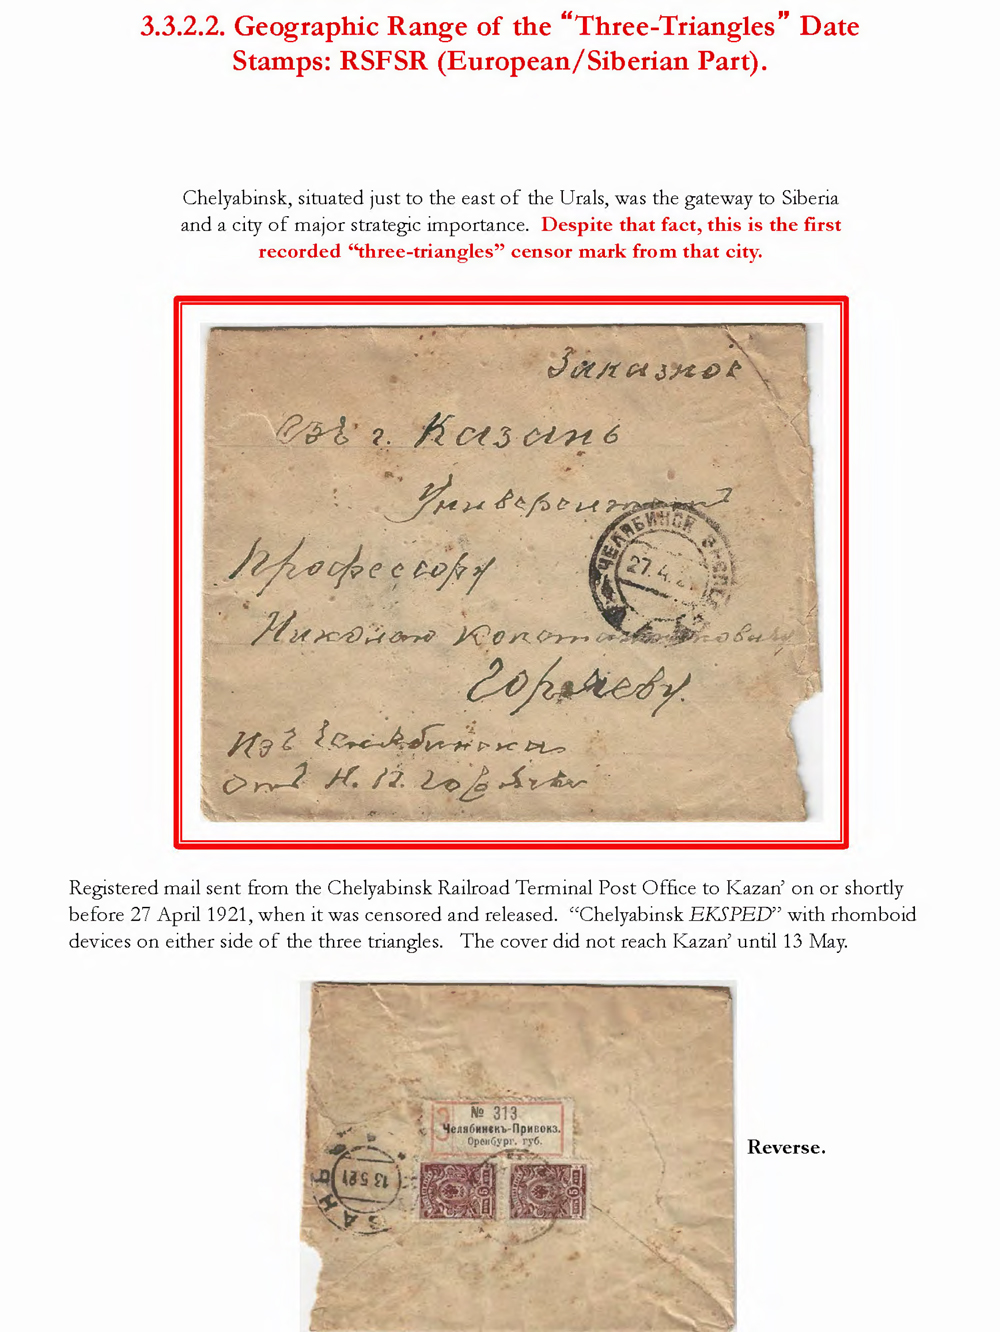 3.3.2.2. Geographic Range of the “Three-Triangles” Date
Stamps: RSFSR (European/Siberian Part).
Chelyabinsk, situated just to the east of the Urals, was the gateway to Siberia
and a city of major strategic importance. Despite that fact, this is the first
recorded “three-triangles” censor mark from that city.
Заказное
г. Казань
Университетъ
ЧЕЛЯБИНСК
27.4.2
Профессору
Николаю Константиновичу
Горяеву.
Изъ Челябинска
Отъ Н. П.
Registered mail sent from the Chelyabinsk Railroad Terminal Post Office to Kazan’ on or shortly
before 27 April 1921, when it was censored and released. “Chelyabinsk EKSPED” with rhomboid
devices on either side of the three triangles. The cover did not reach Kazan’ until 13 May.
№ 313
Челябинскъ-Привокз.
Оренбург. губ.
13 5 21
Reverse.